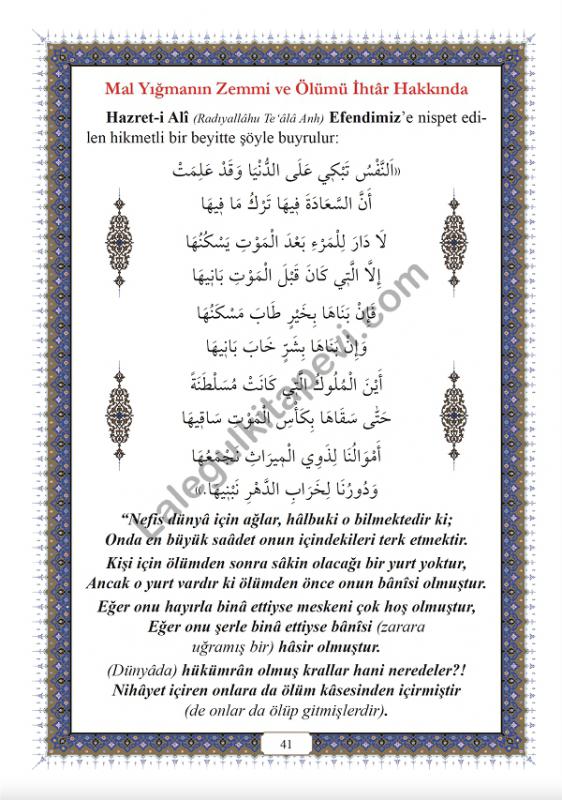 Mal Yığmanın Zemmi ve Ölümü İhtâr Hakkında
Hazret-i Alî (Radıyallâhu Te‘âlâ Anh) Efendimiz’e nispet edi-
len hikmetli bir beyitte şöyle buyrulur:
«اَلنَّفْسُ تَبْكِي عَلَى الدُّنْيَا وَقَدْ عَلِمَتْ
أَنَّ السَّعَادَةَ فِيهَا تَرْكُ مَا فِيهَا
لَا دَارَ لِلْمَرْءِ بَعْدَ الْمَوْتِ يَسْكُنُهَا
إِلَّا الَّتِي كَانَ قَبْلَ الْمَوْتِ بَانِيهَا
فَإِنْ بَنَاهَا بِخَيْرٍ طَابَ مَسْكَنُهَا
وَإِنْ بَنَاهَا بِشَرٍّ خَابَ بَانِيهَا
أَيْنَ الْمُلُوكُ الَّتِي كَانَتْ مُسَلْطَنَةً
حَتَّى سَقَاهَا بِكَأْسِ الْمَوْتِ سَاقِيهَا
أَمْوَالُنَا لِذَوِي الْمِيرَاثِ نَجْمَعُهَا
وَدُورُنَا لِخَرَابِ الدَّهْرِ نَبْنِيهَا.»
“Nefis dünyâ için ağlar, hâlbuki o bilmektedir ki;
Onda en büyük saâdet onun içindekileri terk etmektir.
Kişi için ölümden sonra sâkin olacağı bir yurt yoktur,
Ancak o yurt vardır ki ölümden önce onun bânîsi olmuştur.
Eğer onu hayırla binâ ettiyse meskeni çok hoş olmuştur,
Eğer onu şerle binâ ettiyse bânîsi (zarara
uğramış bir) hâsir olmuştur.
(Dünyâda) hükümrân olmuş krallar hani neredeler?!
Nihâyet içiren onlara da ölüm kâsesinden içirmiştir
(de onlar da ölüp gitmişlerdir).
41
Lalegulkitapevi.com